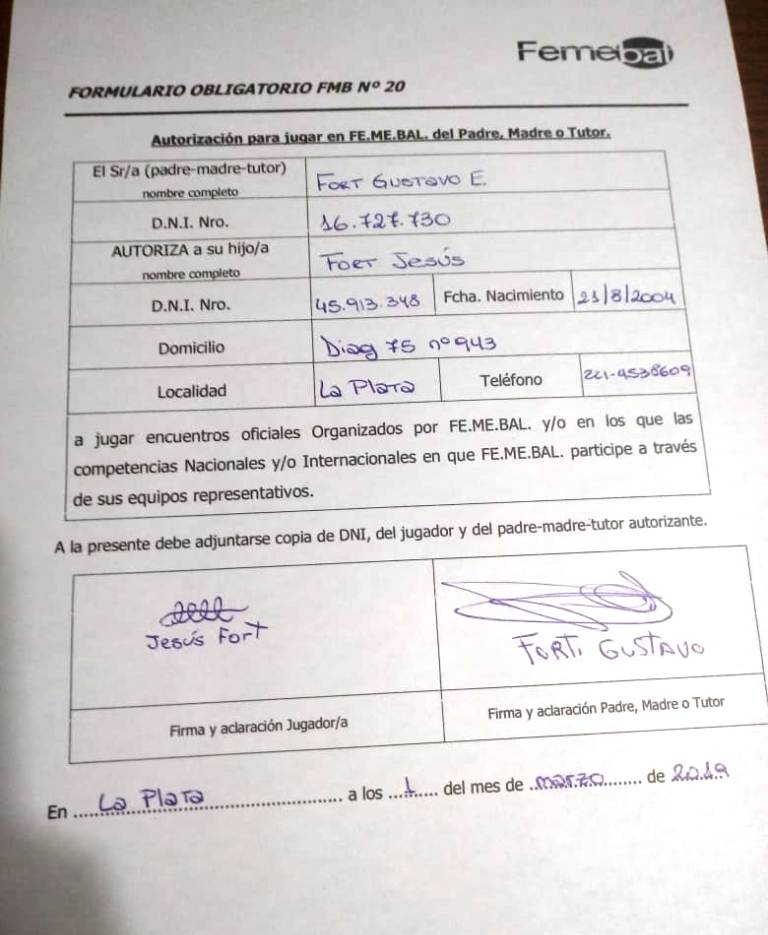 Femebal
FORMULARIO OBLIGATORIO FMB Nº 20
Autorización para jugar en FE.ME.BAL. del Padre, Madre o Tutor.
El Sr/a (padre-madre-tutor)
nombre completo
FORT GUSTAVO E.
D.N.I. Nro.
16.727.730
AUTORIZA a su hijo/a
nombre completo
FORT JESÚS
D.N.I. Nro.
45.913.348
Fcha. Nacimiento
21/8/2004
Domicilio
Diag 75 nº 943
Localidad
La Plata
Teléfono
221-4538609
a jugar encuentros oficiales Organizados por FE.ME.BAL. y/o en los que las
competencias Nacionales y/o Internacionales en que FE.ME.BAL. participe a través
de sus equipos representativos.
A la presente debe adjuntarse copia de DNI, del jugador y del padre-madre-tutor autorizante.
Jesús Fort
FORT, GUSTAVO
Firma y aclaración Jugador/a
Firma y aclaración Padre, Madre o Tutor
En La Plata a los 1 del mes de marzo de 2019